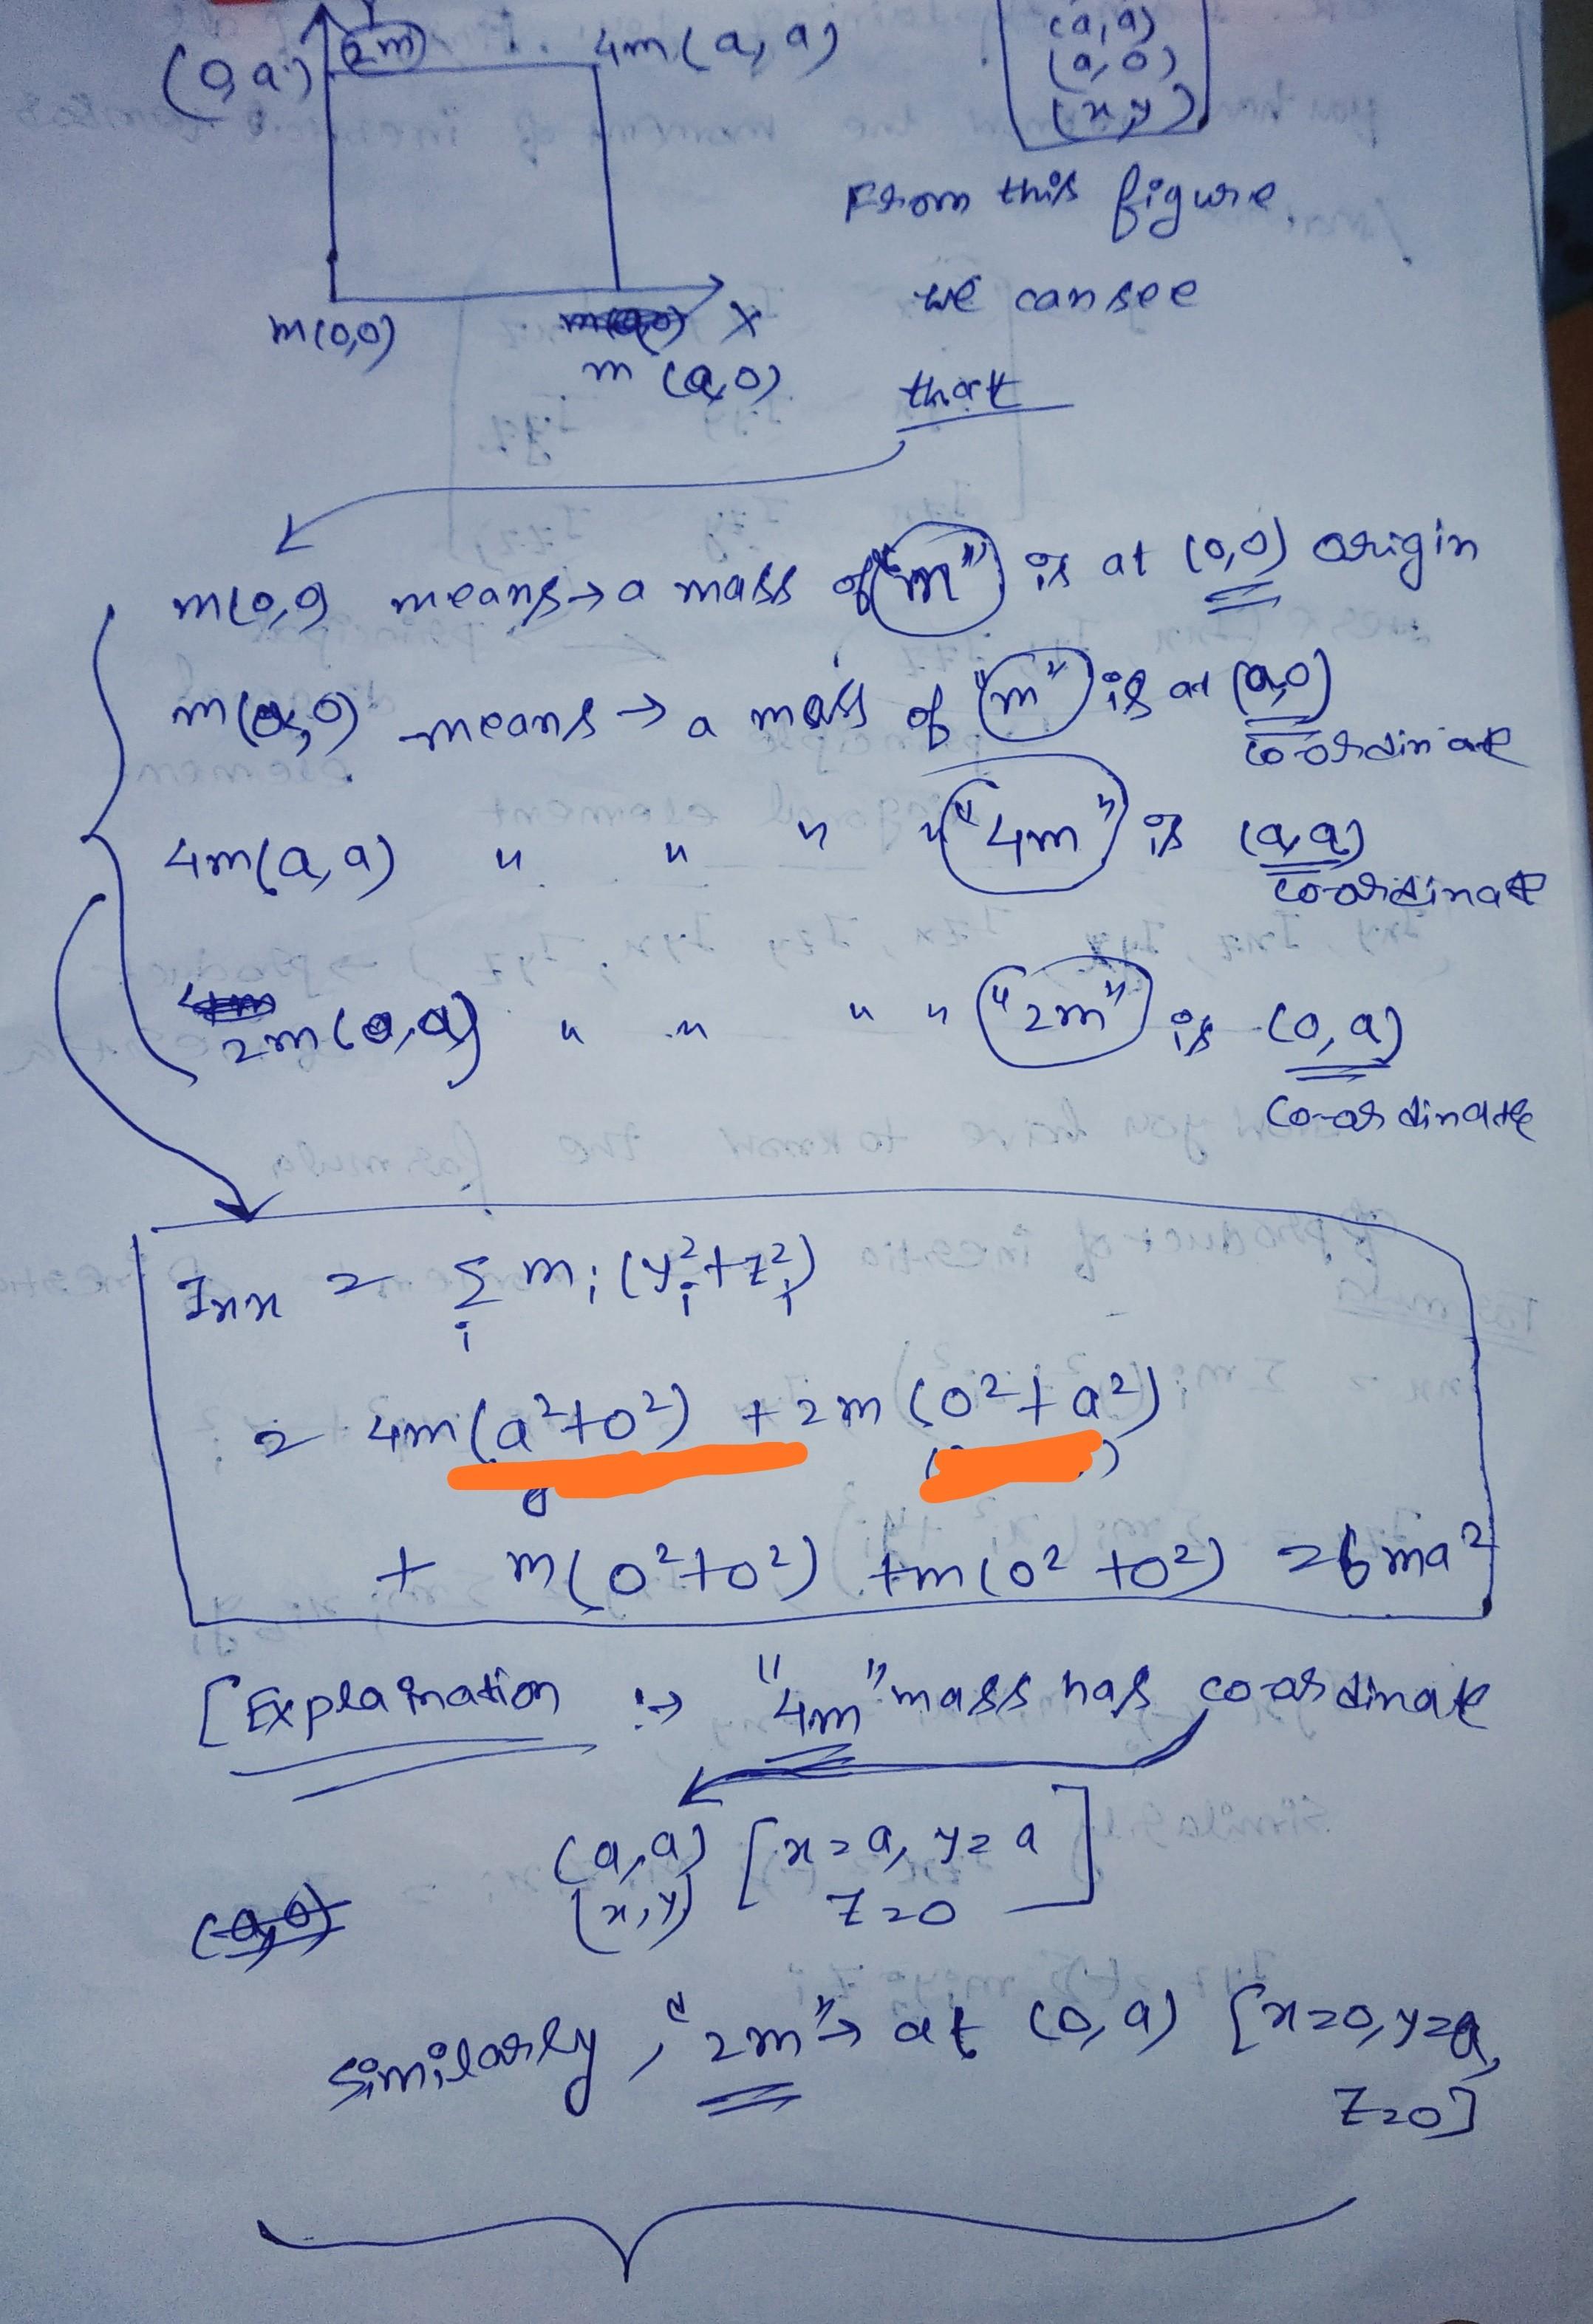 Y
(0,a) 2m 4m(a,a)
(a,a)
(a,0)
(x,y)
From this figure,
we can see
that
m(0,0) X
m (a,0)
m(0,0) means → a mass of "m" is at (0,0) origin
m(a,0) means → a mass of "m" is at (a,0)
co-ordinate
4m(a,a) " " " " "4m" is (a,a)
co-ordinate
2m(0,a) " " " " "2m" is (0,a)
co-ordinate
Ixx = Σ mi (yi²+zi²)
i
= 4m(a²+0²) + 2m(0²+a²)
+ m(0²+0²) +m(0²+0²) = 6ma²
[Explaination :→ "4m" mass has co-ordinate
(a,a) [x=a, y=a
(x,y) z=0]
(a,0)
similarly, "2m" → at (0,a) [x=0, y=a,
z=0]